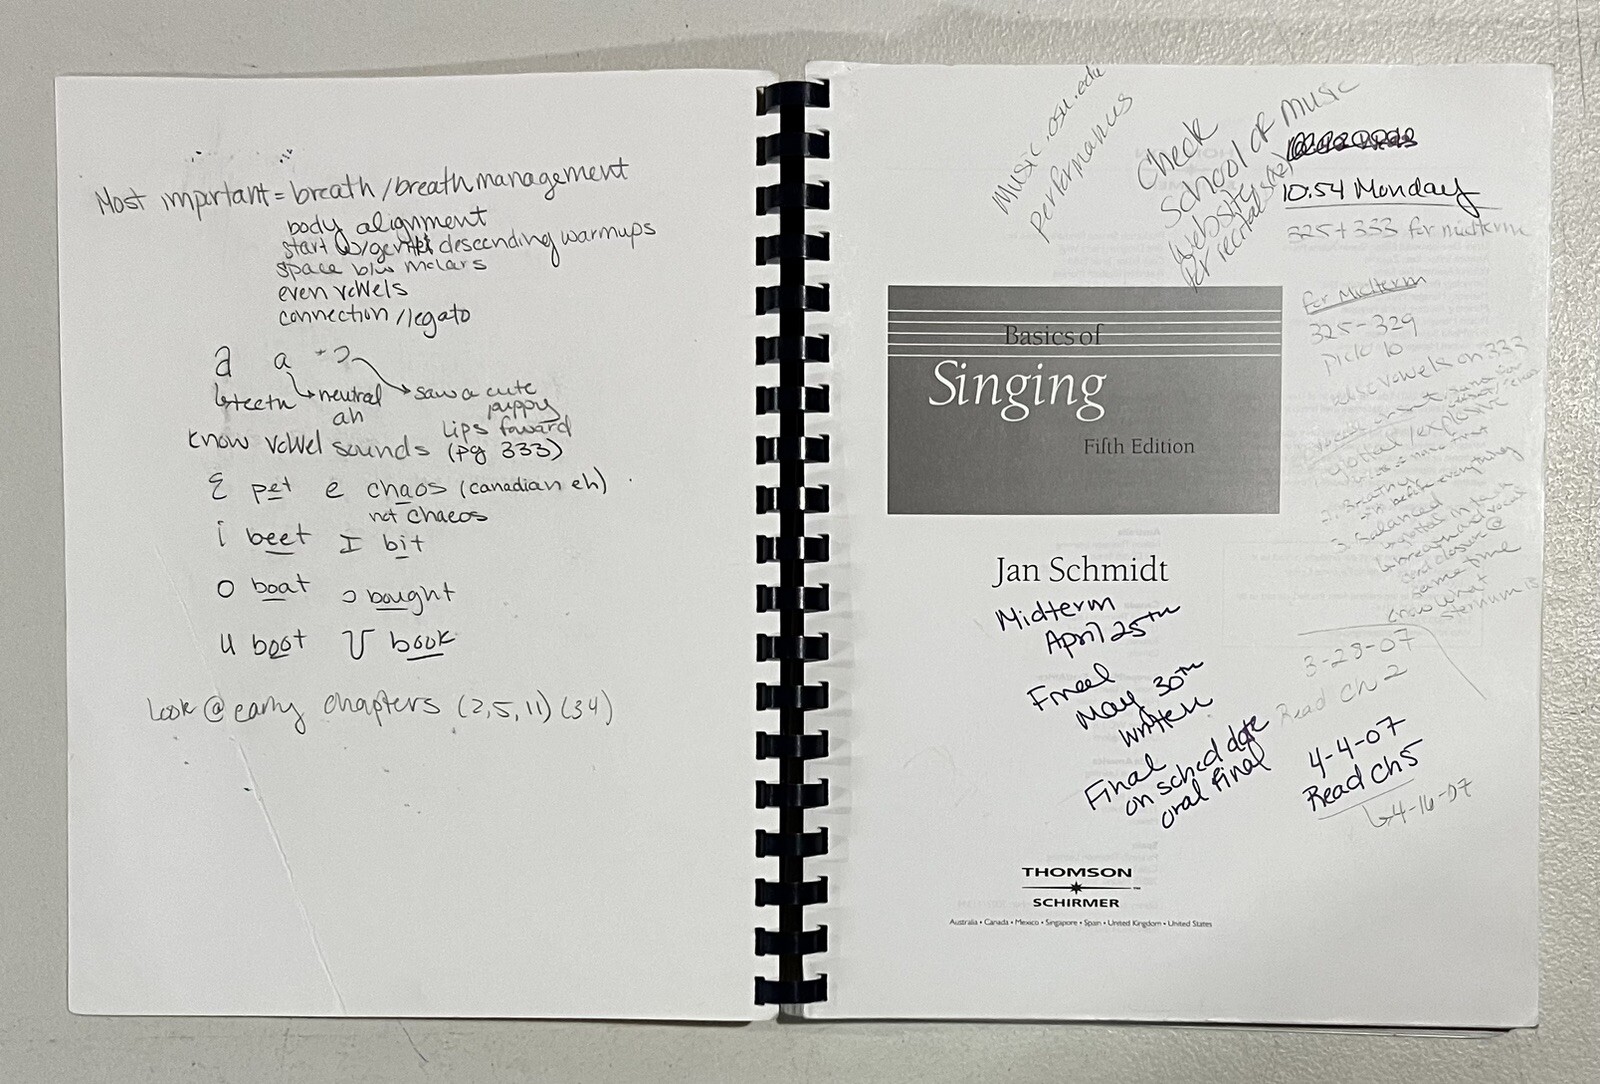 Most important = breath / breath management
body alignment
start w/ gentle descending warmups
space b/w molars
even vowels
connection / legato
a a ɔ
teeth neutral ah
saw a cute puppy
lips foward
know vowel sounds (pg 333)
ɛ pet e chaos (canadian eh)
not chaeos
i beet I bit
o boat ɔ bought
u boot U book
Look @ early chapters (2,5,11) (34)
music.osu.edu
performances
Check
School of music
website
for recital sched
10:54 Monday
325 + 333 for midterm
for Midterm
325-329
pick 10
also vowels on 333
glottal / explosive
2. Breathy
before everything
3. Balanced
breath and vocal
cord closure @
same time
know what
sternum is
3-28-07
Read Ch 2
4-4-07
Read Ch 5
4-16-07
Basics of
Singing
Fifth Edition
Jan Schmidt
Midterm
April 25th
Final
May 30th
written
Final
on sched date
oral final
THOMSON
™
SCHIRMER
Australia • Canada • Mexico • Singapore • Spain • United Kingdom • United States